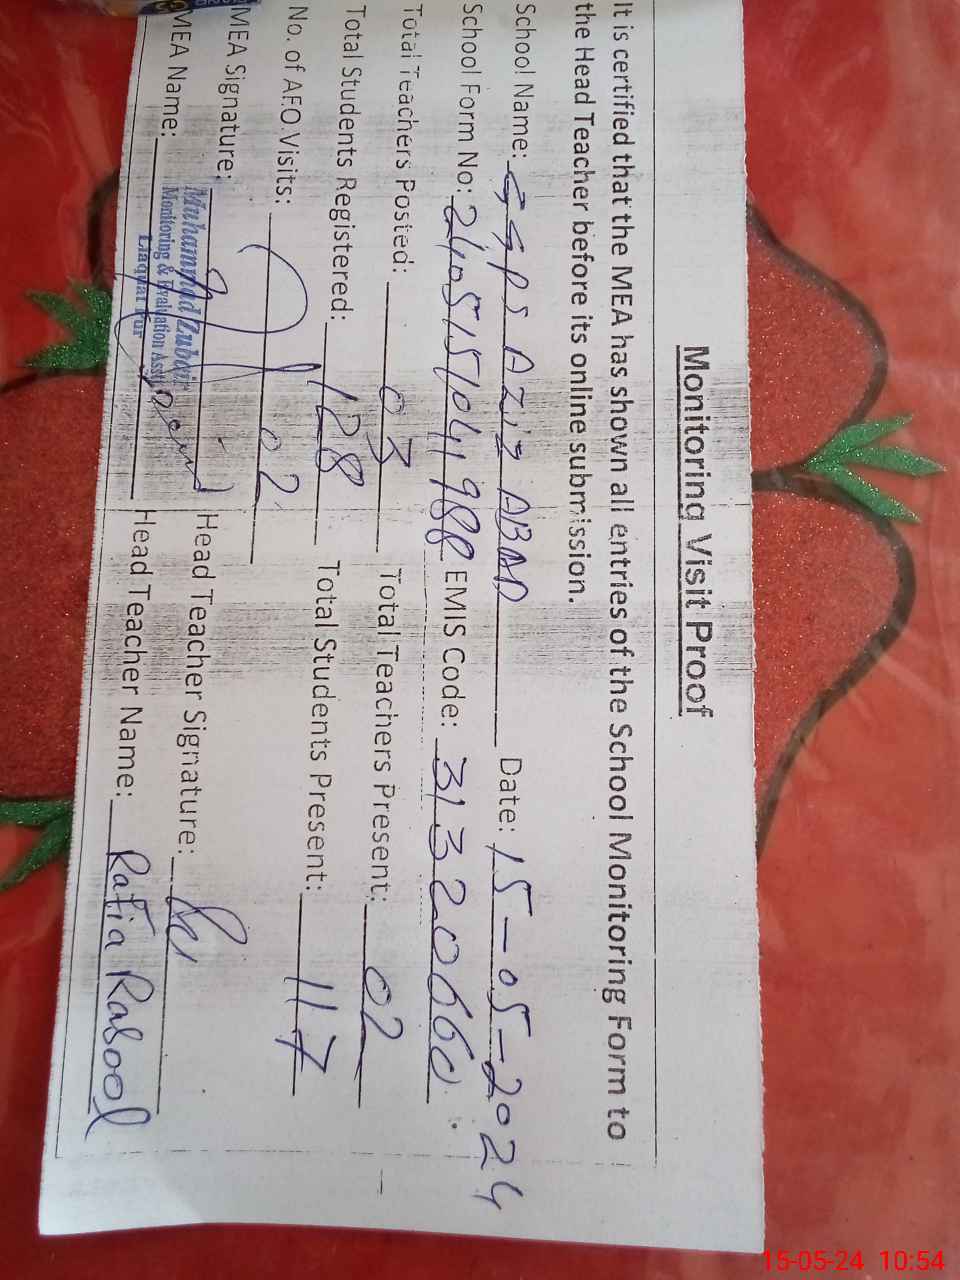 Monitoring Visit Proof
It is certified that the MEA has shown all entries of the School Monitoring Form to
the Head Teacher before its online submission.
School Name: GGPS Aziz ABAD Date: 15-05-2024
School Form No: 2405151044988 EMIS Code: 31320660
Total Teachers Posted: 03 Total Teachers Present: 02
Total Students Registered: 128 Total Students Present: 117
No. of AEO Visits: 02
MEA Signature: Head Teacher Signature:
Muhammad Zubair
Monitoring & Evaluation Asstt
Liaquat Pur
MEA Name: Head Teacher Name: Rafia Rasool
15-05-24 10:54